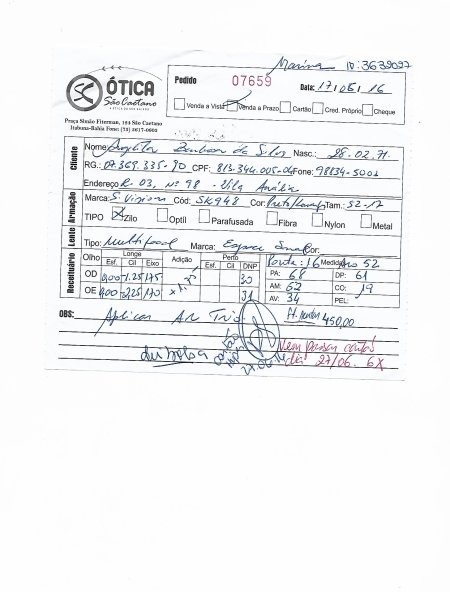 Marina ID: 3639097
SC ÓTICA
São Caetano
Pedido 07659 Data: 17/05/16
Venda a Vista Venda a Prazo Cartão Cred. Próprio Cheque
Praça Simão Fiterman, 153 São Caetano
Itabuna-Bahia Fone: (73) 3617-0603
Cliente
Nome: da Silva Nasc.: 28.02.71
RG.: 07.369.335-90 CPF: 813.344.005-04 Fone: 98834-5002
Endereço R-03, nº 98 - Vila Anália
Armação
Marca: S. Vision Cód: SK948 Cor: Tam.: 52-17
TIPO Zilo Optil Parafusada Fibra Nylon Metal
Lente
Tipo: Multifocal Marca: Espace Cor:
Receituário
Olho Longe Adição Perto Ponte: 16 Medida Aro 52
Esf. Cil Eixo Esf. Cil DNP
OD 0,00 -1,25 175 30 PA: 68 DP: 61
OE 0,00 170 31 AM: 62 CO: 19
AV: 34 PEL:
OBS: Aplicar AR 450,00
Vem passar cartão
dia 27/06. 6X